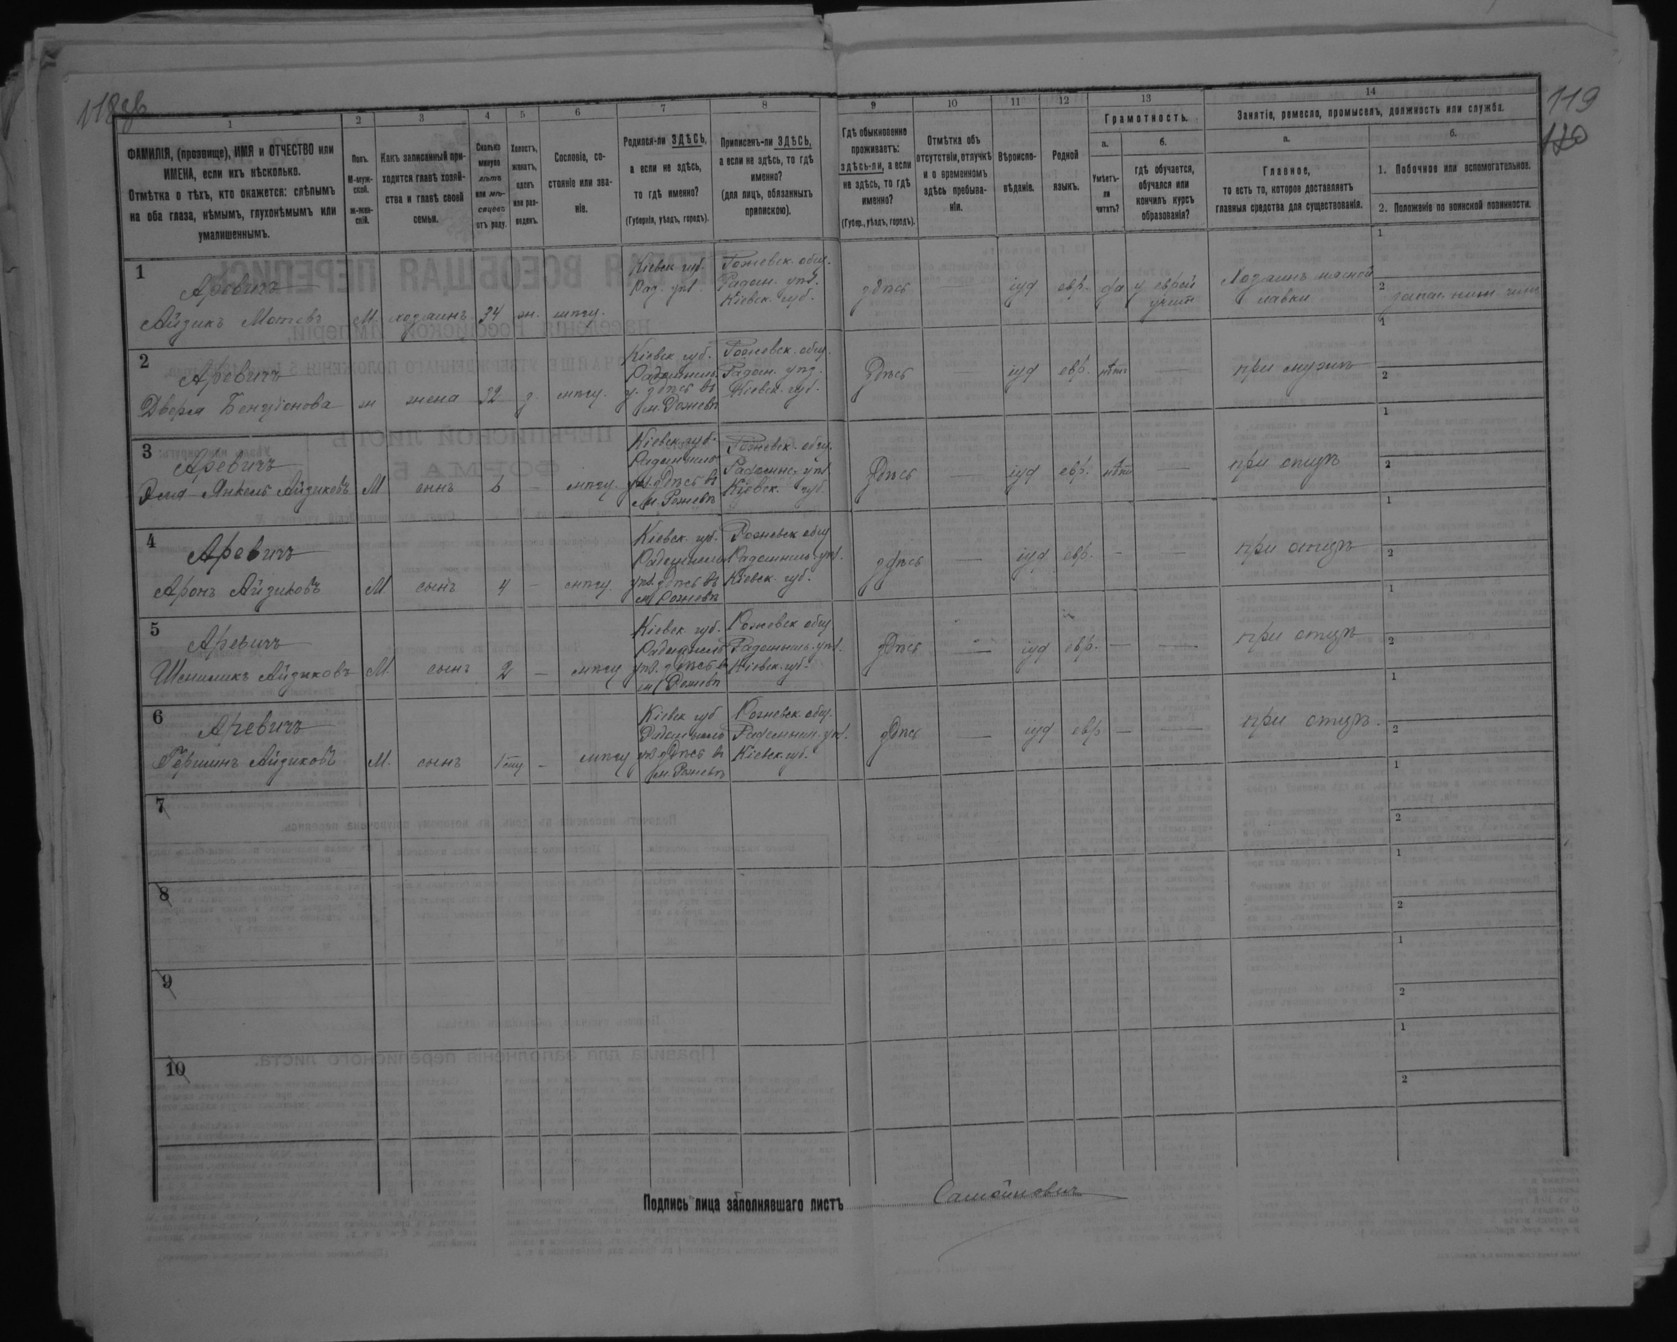 118об
119
1
2
3
4
5
6
7
8
9
10
11
12
13
14
ФАМИЛІЯ, (прозвище), ИМЯ и ОТЧЕСТВО или
ИМЕНА, если ихъ нѣсколько.
Отмѣтка о тѣхъ, кто окажется: слѣпымъ
на оба глаза, нѣмымъ, глухонѣмымъ или
умалишеннымъ.
Полъ.
М-муж-
ской.
ж-жен-
скій.
Какъ записанный при-
ходится главѣ хозяй-
ства и главѣ своей
семьи.
Сколько
минуло
лѣтъ
или мѣ-
сяцевъ
отъ роду.
Холостъ,
женатъ,
вдовъ
или раз-
веденъ.
Сословіе, со-
стояніе или зва-
ніе.
Родился-ли ЗДѢСЬ,
а если не здѣсь,
то гдѣ именно?
(Губернія, уѣздъ, городъ).
Приписанъ-ли ЗДѢСЬ,
а если не здѣсь, то гдѣ
именно?
(для лицъ, обязанныхъ
припискою).
Гдѣ обыкновенно
проживаетъ:
здѣсь-ли, а если
не здѣсь, то гдѣ
именно?
(Губер., уѣздъ, городъ).
Отмѣтка объ
отсутствіи, отлучкѣ
и о временномъ
здѣсь пребыва-
ніи.
Вѣроиспо-
вѣданіе.
Родной
языкъ.
Грамотность.
а.
Умѣетъ-
ли
читать?
б.
гдѣ обучается,
обучался или
кончилъ курсъ
образованія?
Занятіе, ремесло, промыселъ, должность или служба.
а.
Главное,
то есть то, которое доставляетъ
главныя средства для существованія.
б.
1. Побочное или вспомогательное.
2. Положеніе по воинской повинности.
1
Аревичъ
Айзикъ Мотевъ
М
хозяинъ
34
ж.
мѣщ.
Кіевск. губ.
Рад. уѣз.
Рожевск. общ.
Радом. уѣз.
Кіевск. губ.
здѣсь
—
іуд
евр.
да
у еврей
учит
Хозяинъ мясной
лавки
1
2
запас. ниж чинъ
2
Аревичъ
Двойра
ж
жена
32
з
мѣщ.
Кіевск. губ.
Радомысл
у. здѣсь въ
м. Рожевѣ
Рожевск. общ.
Радом. уѣз.
Кіевск. губ.
Здѣсь
іуд
евр.
нѣтъ
—
при мужѣ
1
2
3
Аревичъ
Янкель Айзиковъ
М
сынъ
6
-
мѣщ.
Кіевск. губ.
Радомысл
уѣз. здѣсь въ
м. Рожевѣ
Рожевск. общ.
Радомыс. уѣз
Кіевск. губ.
Здѣсь
—
іуд
евр.
нѣтъ
—
при отцѣ
1
2
4
Аревичъ
Аронъ Айзиковъ
М
сынъ
4
-
мѣщ.
Кіевск. губ.
Радомысл
уѣз. здѣсь въ
м. Рожевѣ
Рожевск общ
Радомысль. уѣз.
Кіевск. губ.
здѣсь
—
іуд
евр.
-
—
при отцѣ
1
2
5
Аревичъ
Шмиликъ Айзиковъ
М
сынъ
2
-
мѣщ
Кіевск. губ.
Радомысль
уѣз. здѣсь въ
м. Рожевѣ
Рожевск общ
Радомысль. уѣз.
Кіевск. губ.
здѣсь
—
іуд
евр.
—
—
при отцѣ
1
2
6
Аревичъ
Гершинъ Айзиковъ
М.
сынъ
-
мѣщ
Кіевск губ
Радомысль
уѣз здѣсь въ
м. Рожевѣ
Рожевск. общ.
Радомысл. уѣз.
Кіевск. губ.
здѣсь
—
іуд
евр.
—
—
при отцѣ.
1
2
7
1
2
8
1
2
9
1
2
10
1
2
Подпись лица заполнявшаго листъ
Самойловичъ